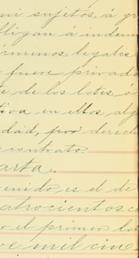 ni sujetos, á g
bligan a indem
rminos legales
fuere privado
e de los lotes, ó
tiva en ellos, alg
dad, por derec
contrato.
arta.
enido es el de
atrocientos c
o el primer lo
ce mil cinc